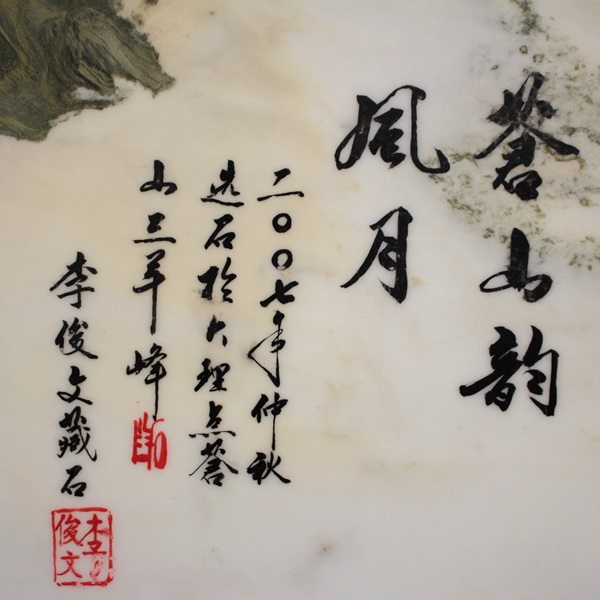 蒼山韵
風月
二〇〇七年仲秋
选石於大理点蒼
山三羊峰
李俊文藏石
李俊文